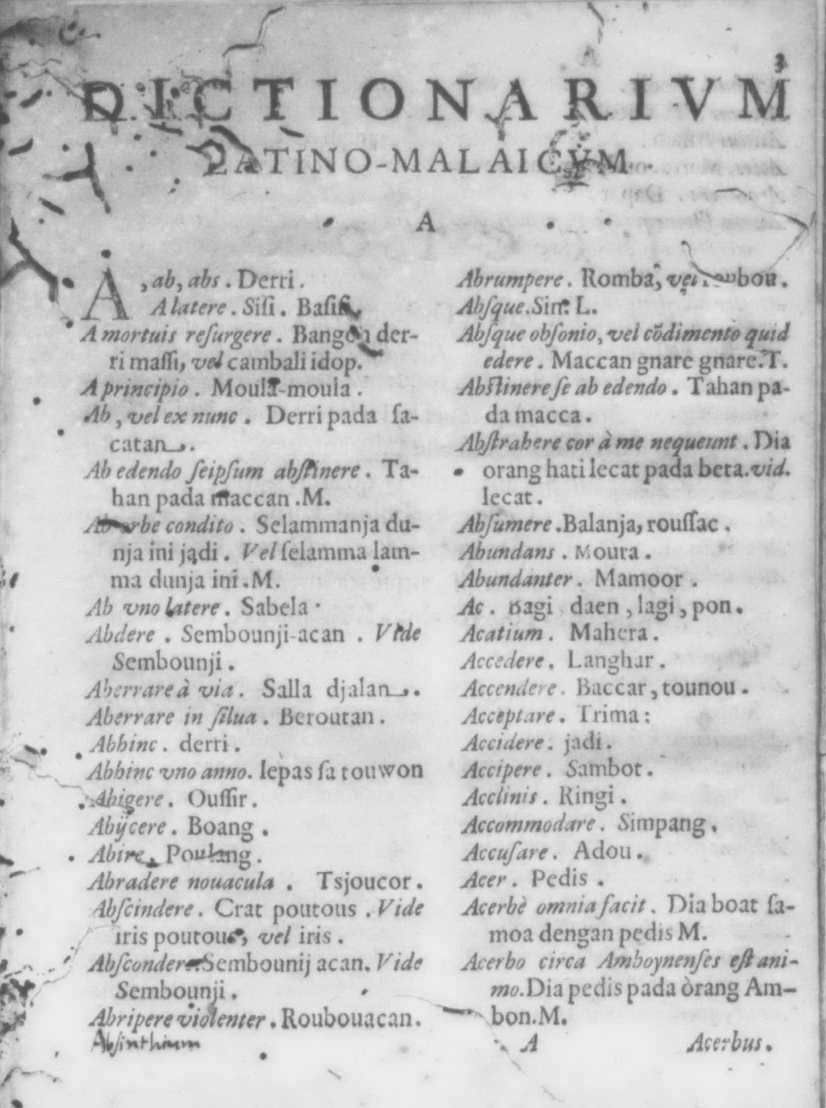 3
DICTIONARIVM
LATINO-MALAICVM
A
A, ab, abs. Derri.
A latere. Sisi. Basisi.
A mortuis reſurgere. Bangon der-
ri maſſi, vel cambali idop.
A principio. Moula-moula.
Ab, vel ex nunc. Derri pada ſa-
catan.
Ab edendo ſeipſum abſtinere. Ta-
han pada maccan.M.
Ab orbe condito. Selammanja du-
nja ini jadi. Vel ſelamma lam-
ma dunja ini.M.
Ab vno latere. Sabela.
Abdere. Sembounji-acan. Vide
Sembounji.
Aberrare à via. Salla djalan.
Aberrare in ſilua. Beroutan.
Abhinc. derri.
Abhinc vno anno. lepas ſa touwon
Abigere. Ouſſir.
Abijcere. Boang.
Abire. Poulang.
Abradere nouacula. Tsjoucor.
Abſcindere. Crat poutous. Vide
iris poutous, vel iris.
Abſcondere. Sembounij acan. Vide
Sembounji.
Abripere violenter. Roubouacan.
Abſinthium
Abrumpere. Romba, vel roubou.
Abſque. Sin. L.
Abſque obſonio, vel cōdimento quid
edere. Maccan gnare gnare.T.
Abſtinere ſe ab edendo. Tahan pa-
da macca.
Abſtrahere cor à me nequeunt. Dia
orang hati lecat pada beta. vid.
lecat.
Abſumere. Balanja, rouſſac.
Abundans. Moura.
Abundanter. Mamoor.
Ac. Bagi daen, lagi, pon.
Acatium. Mahera.
Accedere. Langhar.
Accendere. Baccar, tounou.
Acceptare. Trima:
Accidere. jadi.
Accipere. Sambot.
Acclinis. Ringi.
Accommodare. Simpang.
Accuſare. Adou.
Acer. Pedis.
Acerbè omnia facit. Dia boat ſa-
moa dengan pedis M.
Acerbo circa Amboynenſes eſt ani-
mo. Dia pedis pada òrang Am-
bon.M.
A Acerbus.